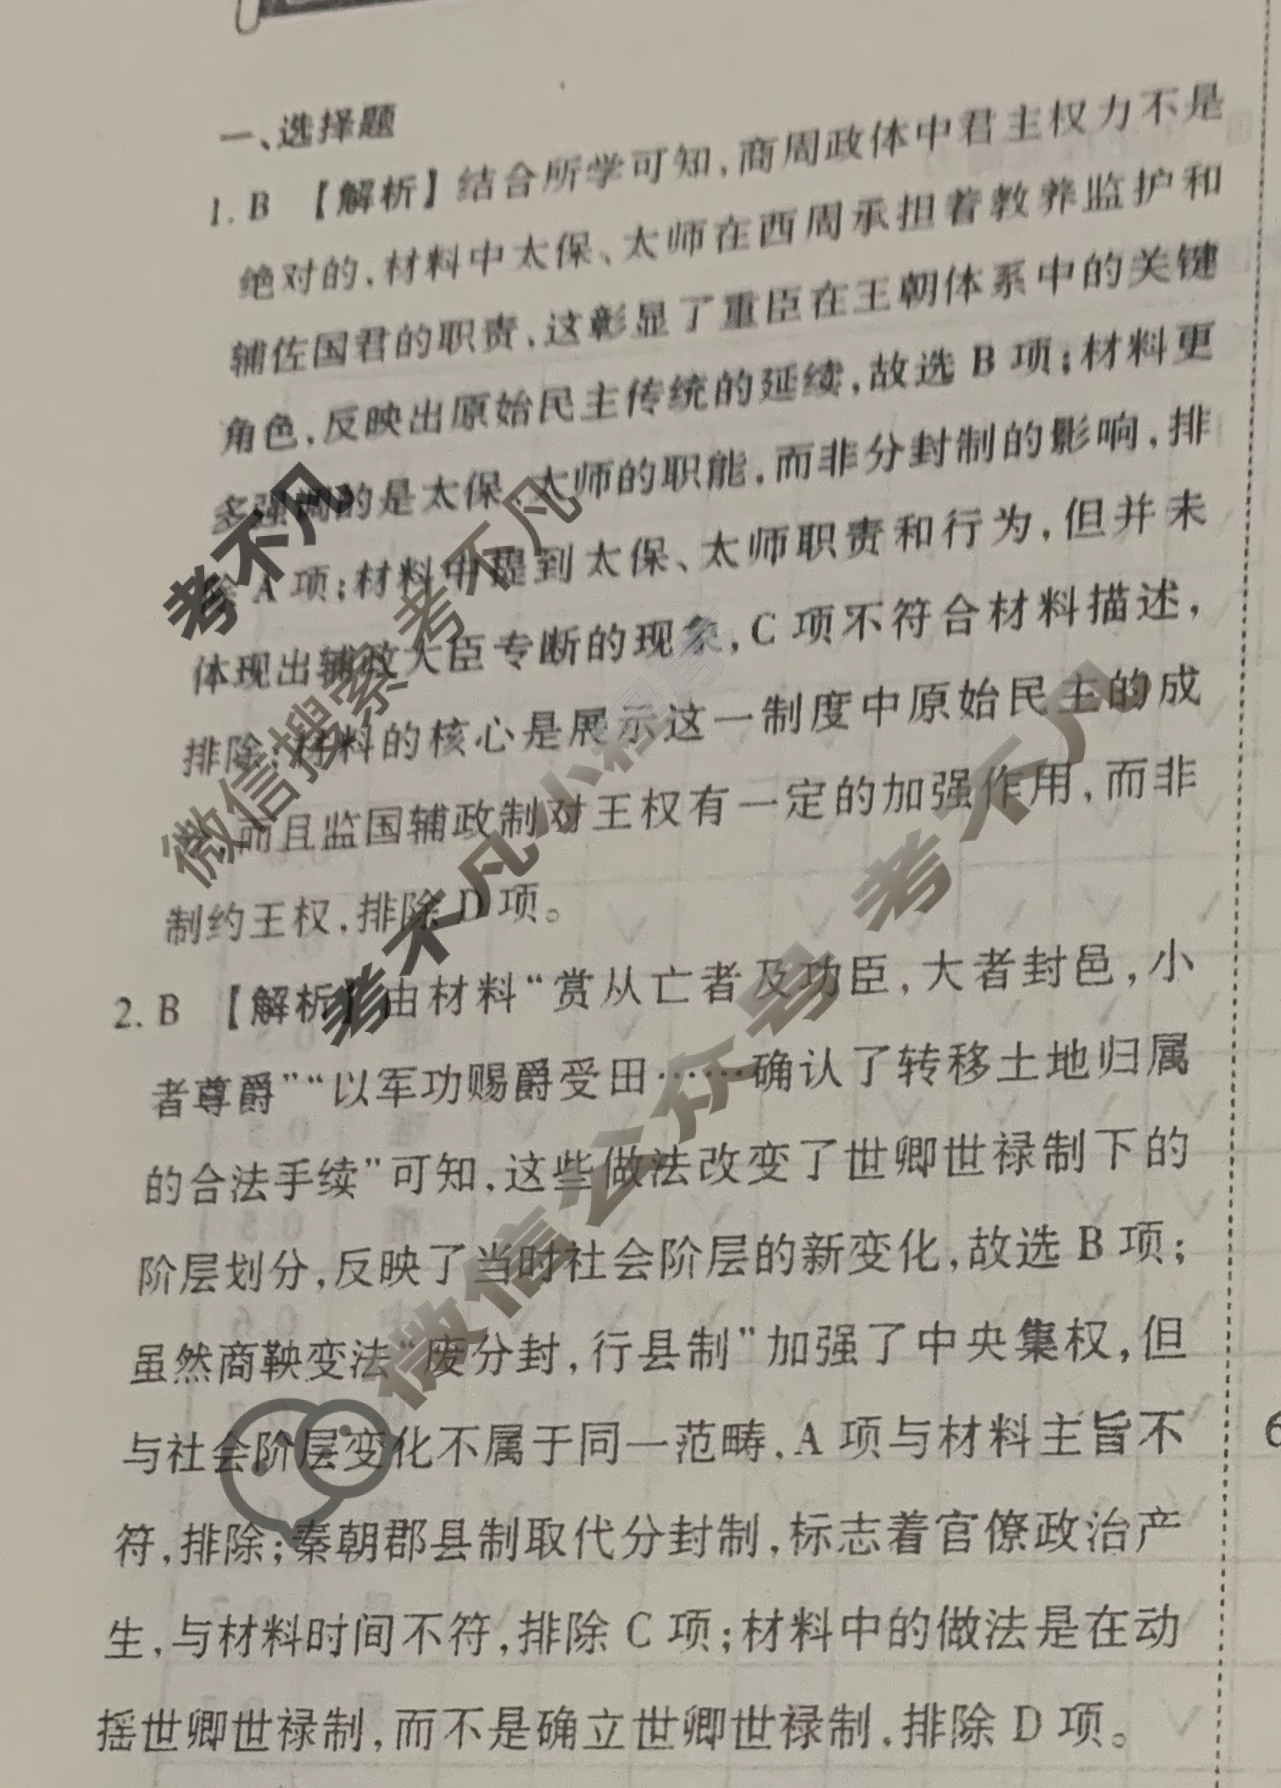 一、选择题
1. B 【解析】结合所学可知,商周政体中君主权力不是
绝对的,材料中太保、太师在西周承担着教养监护和
辅佐国君的职责,这彰显了重臣在王朝体系中的关键
角色,反映出原始民主传统的延续,故选 B 项;材料更
多强调的是太保、太师的职能,而非分封制的影响,排
除 A 项;材料中提到太保、太师职责和行为,但并未
体现出辅政大臣专断的现象,C 项不符合材料描述,
排除;材料的核心是展示这一制度中原始民主的成
,而且监国辅政制对王权有一定的加强作用,而非
制约王权,排除 D 项。
2. B 【解析】由材料“赏从亡者及功臣,大者封邑,小
者尊爵”“以军功赐爵受田……确认了转移土地归属
的合法手续”可知,这些做法改变了世卿世禄制下的
阶层划分,反映了当时社会阶层的新变化,故选 B 项;
虽然商鞅变法“废分封,行县制”加强了中央集权,但
与社会阶层变化不属于同一范畴,A 项与材料主旨不
符,排除;秦朝郡县制取代分封制,标志着官僚政治产
生,与材料时间不符,排除 C 项;材料中的做法是在动
摇世卿世禄制,而不是确立世卿世禄制,排除 D 项。
6
考不凡
微信搜索 考不凡
考不凡小程序
微信公众号 考不凡